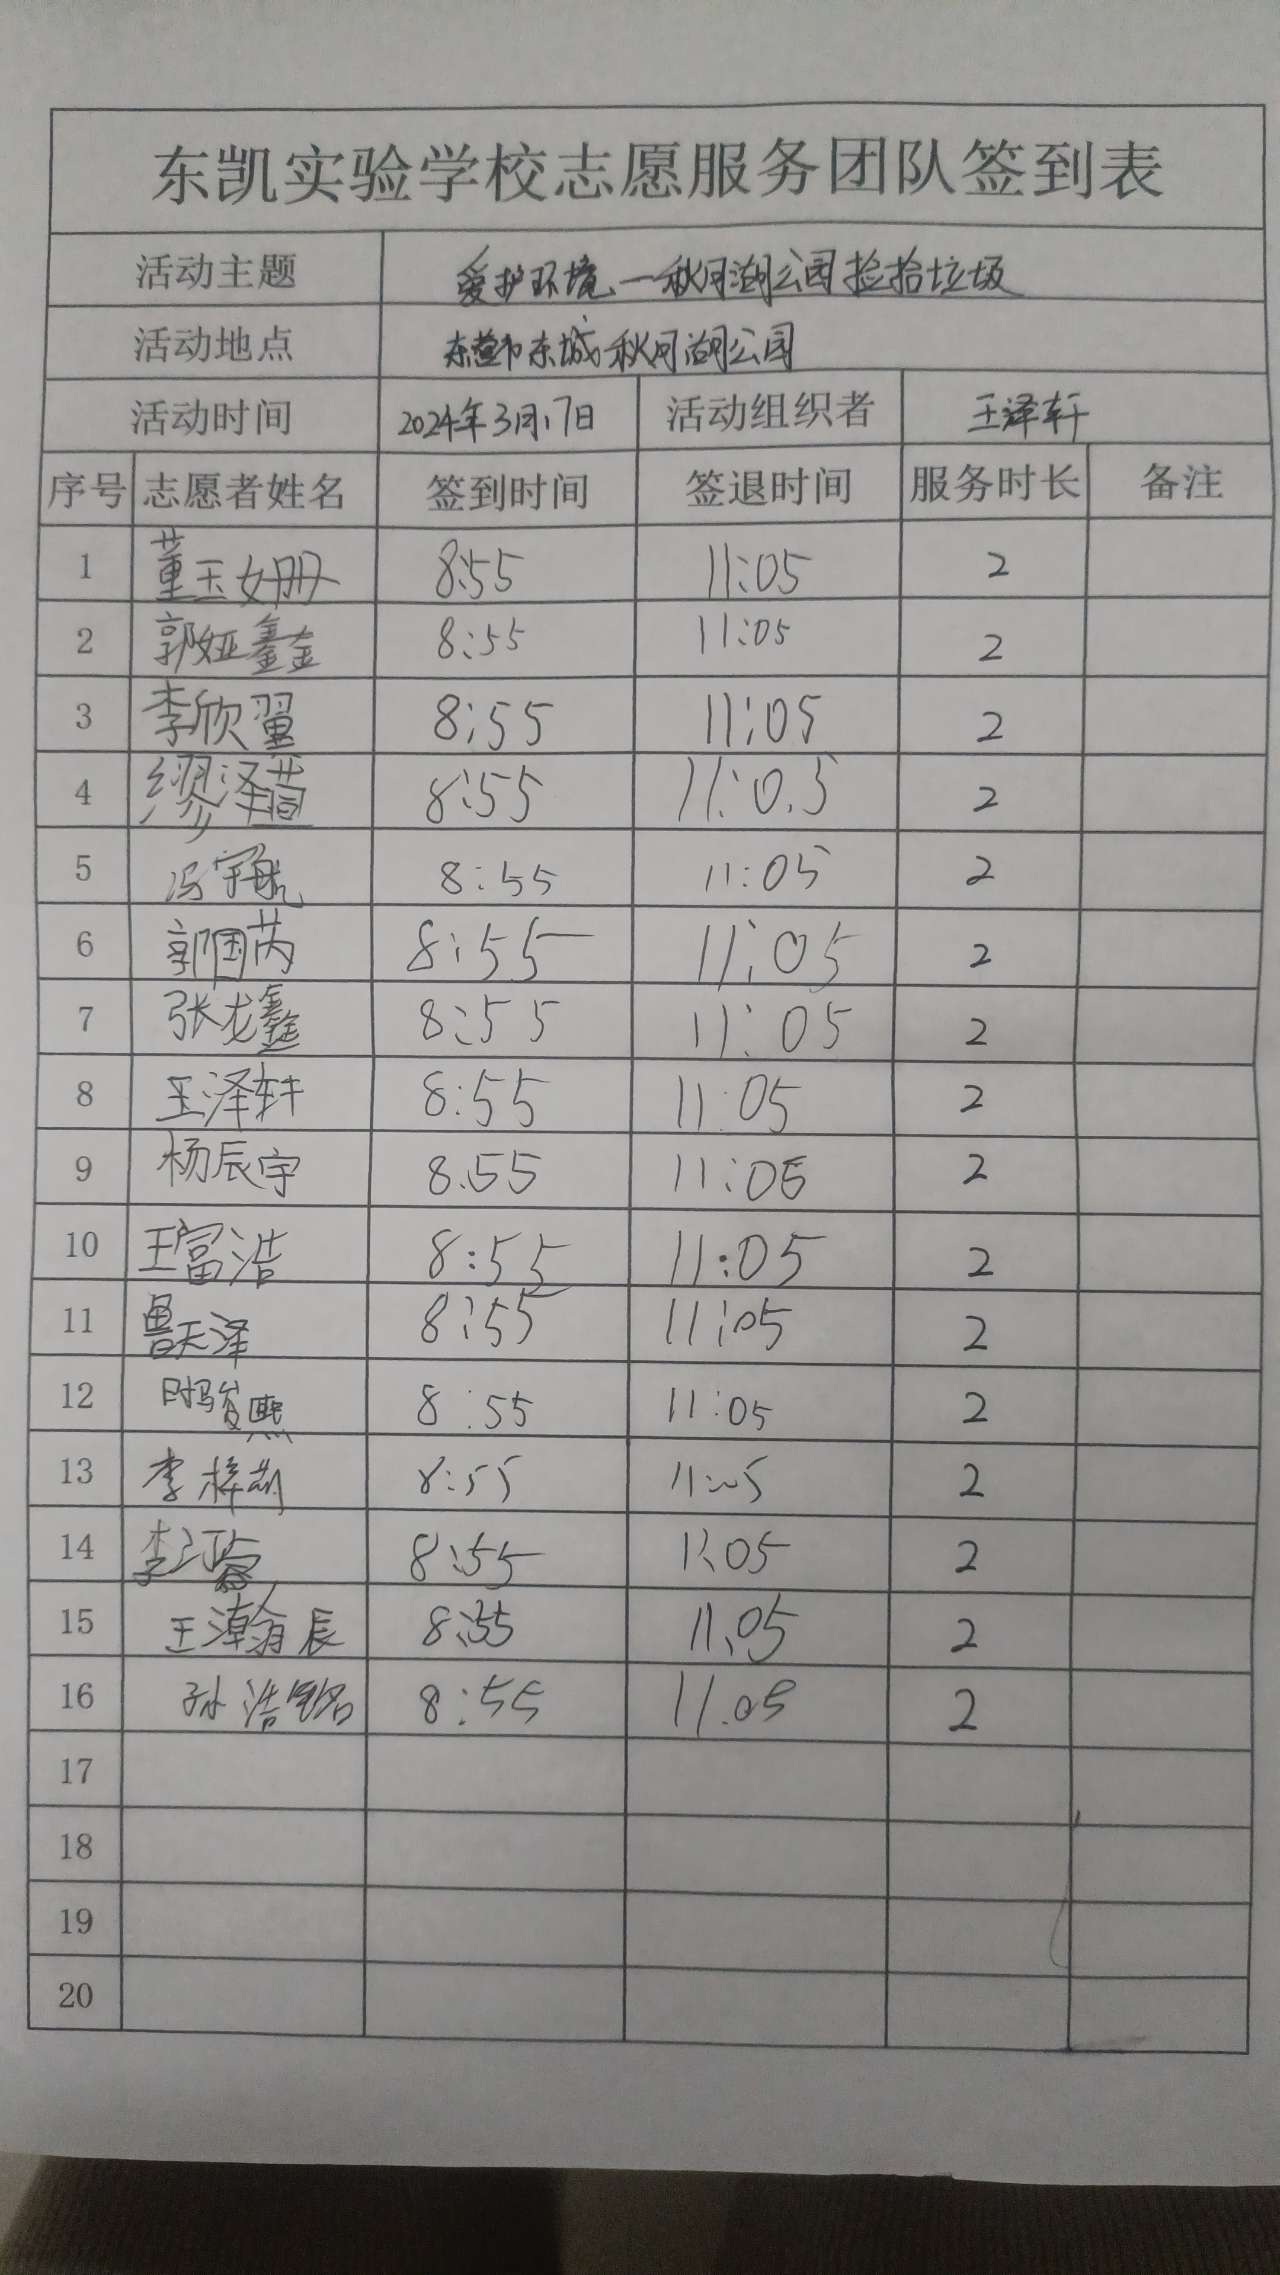 东凯实验学校志愿服务团队签到表
活动主题 爱护环境—秋月湖公园捡拾垃圾
活动地点 东营市东城秋月湖公园
活动时间 2024年3月17日 活动组织者 王泽轩
序号 志愿者姓名 签到时间 签退时间 服务时长 备注
1 董玉姗 8:55 11:05 2
2 郭娅鑫 8:55 11:05 2
3 李欣翼 8:55 11:05 2
4 缪泽萱 8:55 11:05 2
5 冯宇航 8:55 11:05 2
6 郭国芮 8:55 11:05 2
7 张龙鑫 8:55 11:05 2
8 王泽轩 8:55 11:05 2
9 杨辰宇 8:55 11:05 2
10 王富浩 8:55 11:05 2
11 鲁天泽 8:55 11:05 2
12 时骏熙 8:55 11:05 2
13 李梓 8:55 11:05 2
14 李 睿 8:55 11:05 2
15 王瀚辰 8:55 11:05 2
16 孙浩铭 8:55 11:05 2
17
18
19
20